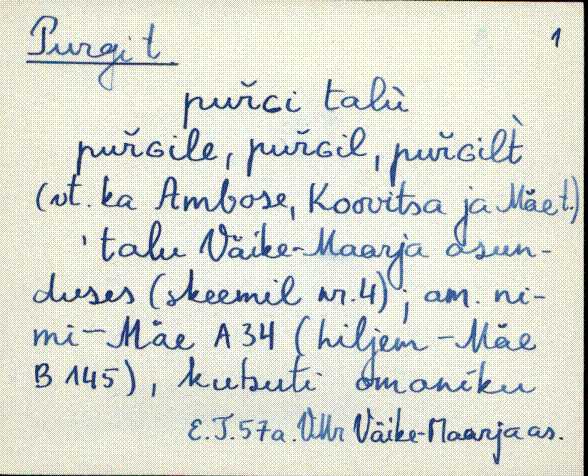 Purgi t. 1
puřɢi talù
puřɢile, puřɢil, puřɢilt̀
(vt. ka Ambose, Koovitsa ja Mäe t.)
'talu Väike-Maarja asun-
duses (skeemil nr. 4); am. ni-
mi - Mäe A 34 (hiljem - Mäe
B 145), kutsuti omaniku
E.J. 57a. VMr Väike-Maarja as.